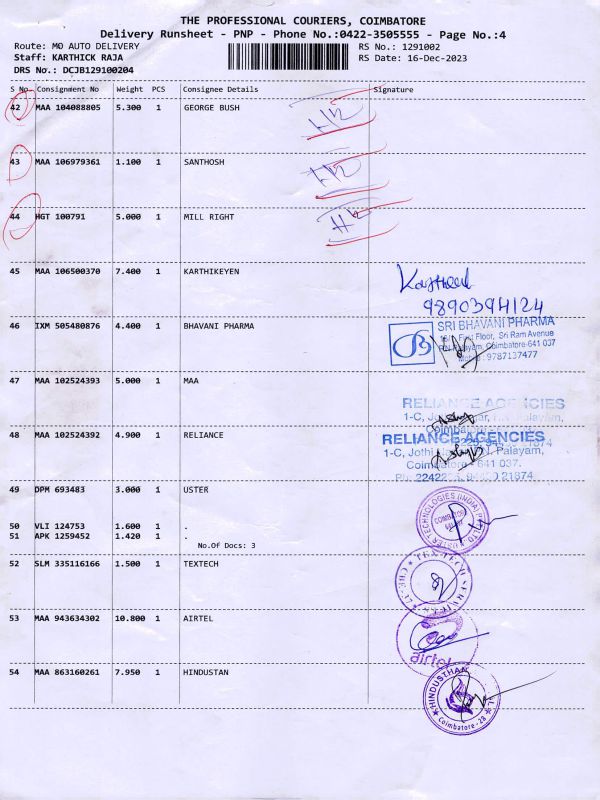 THE PROFESSIONAL COURIERS, COIMBATORE
Delivery Runsheet - PNP - Phone No.:0422-3505555 - Page No.:4
Route: MO AUTO DELIVERY RS No.: 1291002
Staff: KARTHICK RAJA RS Date: 16-Dec-2023
DRS No.: DCJB129100204
S No. Consignment No Weight PCS Consignee Details Signature
42 MAA 104088805 5.300 1 GEORGE BUSH
43 MAA 106979361 1.100 1 SANTHOSH
44 HGT 100791 5.000 1 MILL RIGHT
45 MAA 106500370 7.400 1 KARTHIKEYEN
9890394124
46 IXM 505480876 4.400 1 BHAVANI PHARMA
SRI BHAVANI PHARMA
First Floor, Sri Ram Avenue
Palayam, Coimbatore-641 037
9787137477
47 MAA 102524393 5.000 1 MAA
RELIANCE AGENCIES
1-C, Palayam,
48 MAA 102524392 4.900 1 RELIANCE
RELIANCE AGENCIES
1-C, Jothi Palayam,
Coimbatore - 641 037.
21874
49 DPM 693483 3.000 1 USTER
USTER TECHNOLOGIES (INDIA)
COIMBATORE
50 VLI 124753 1.600 1 .
51 APK 1259452 1.420 1 .
No.Of Docs: 3
52 SLM 335116166 1.500 1 TEXTECH
TEX TECH
53 MAA 943634302 10.800 1 AIRTEL
airtel
54 MAA 863160261 7.950 1 HINDUSTAN
HINDUSTHAN
Coimbatore - 28